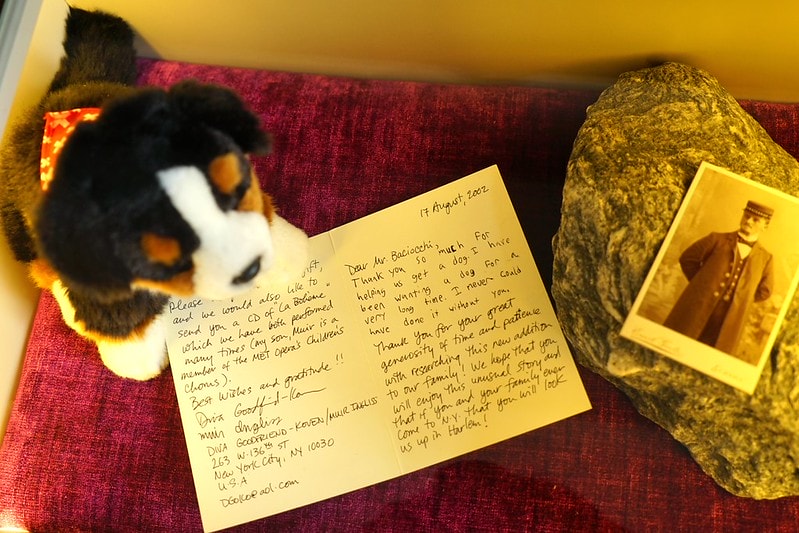 17 August, 2002
Dear Mr. Baciocchi,
Thank you so much for
helping us get a dog. I have
been wanting a dog for a
very long time. I never could
have done it without you.
Thank you for your great
generosity of time and patience
with researching this new addition
to our family! We hope that you
will enjoy this unusual story and
that if you and your family ever
come to N.Y. that you will look
us up in Harlem!
Please gift,
and we would also like to
send you a CD of "La Bohème"
which we have both performed
many times (my son, Muir is a
member of the MET Opera's Children's
chorus).
Best Wishes and gratitude!!
Diva Goodfriend-Koven
Muir Ingliss
DIVA GOODFRIEND-KOVEN/MUIR INGLISS
263 W. 136th ST
NEW YORK CITY, NY 10030
U.S.A